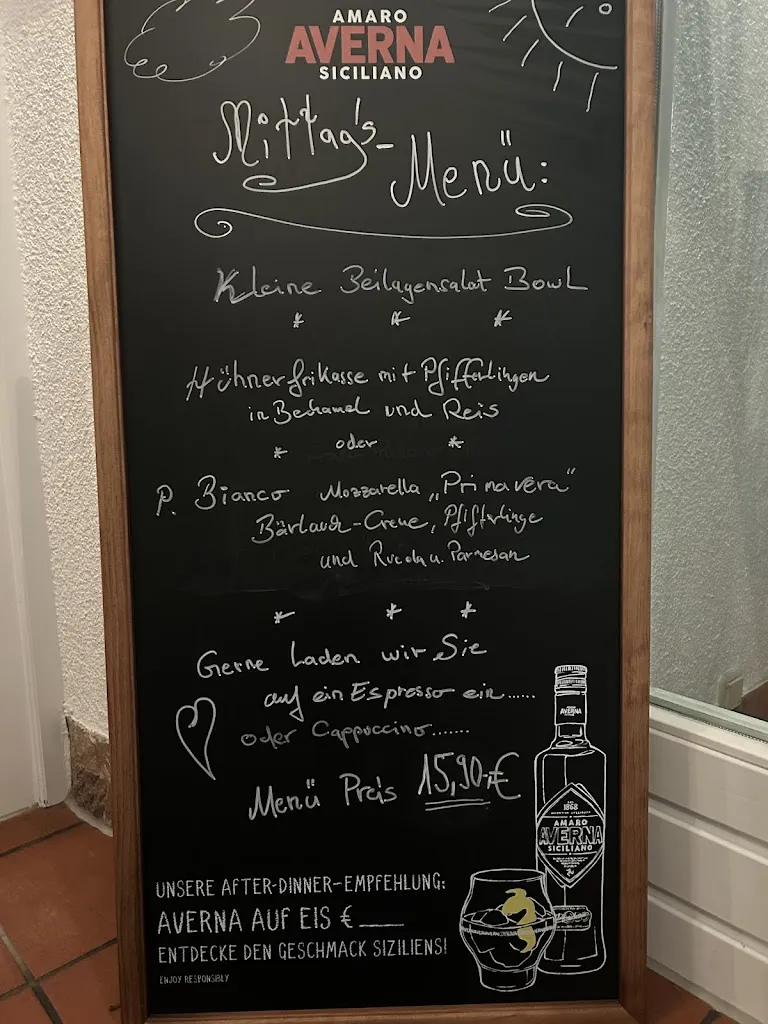 AMARO
AVERNA
SICILIANO
Mittag's-
Menü:
Kleine Beilagensalat Bowl
* * *
Hühnerfrikasse mit Pfifferlingen
in Bechamel und Reis
* oder *
P. Bianco Mozzarella „Primavera"
Bärlauch-Creme, Pfifferlinge
und Rucola u. Parmesan
* * *
Gerne laden wir Sie
auf ein Espresso ein......
oder Cappuccino.......
Menü Preis 15,90-€
AVERNA
1868
AMARO
AVERNA
SICILIANO
UNSERE AFTER-DINNER-EMPFEHLUNG:
AVERNA AUF EIS €____
ENTDECKE DEN GESCHMACK SIZILIENS!
ENJOY RESPONSIBLY